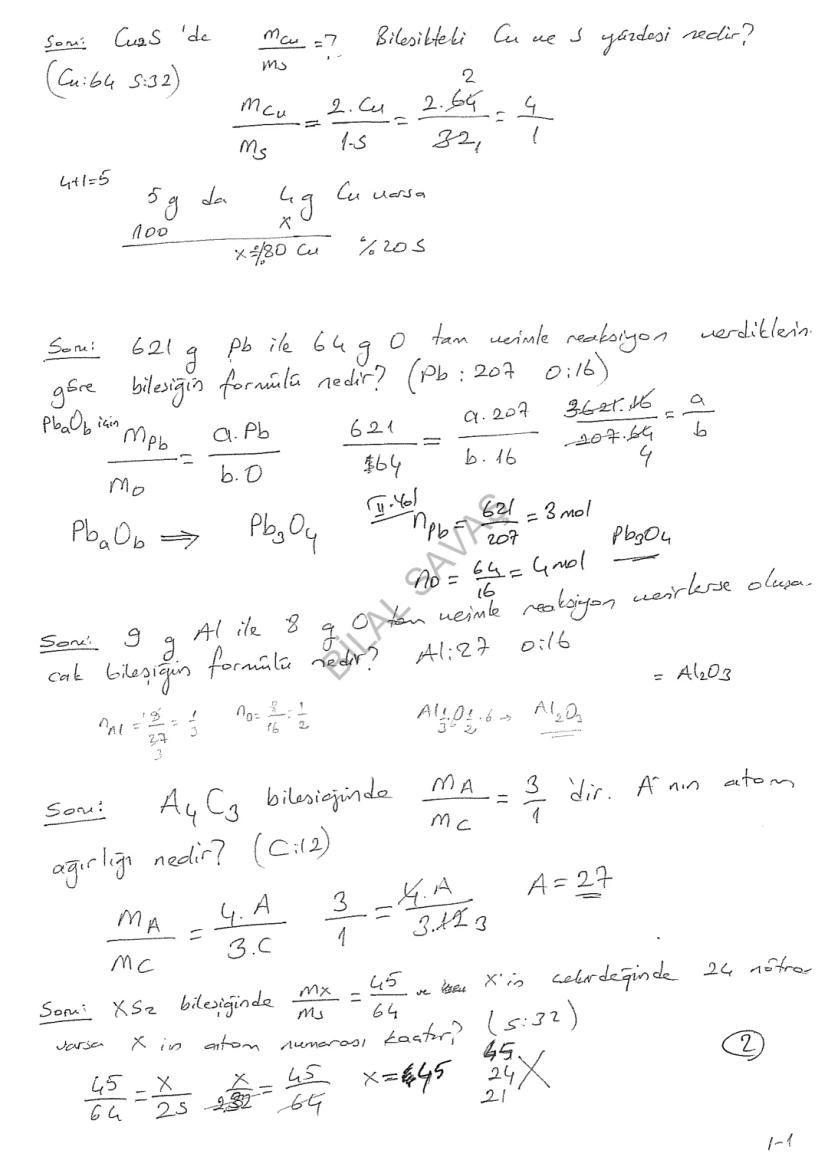 Soru: Cu₂S 'de mCu/mS = ? Bilesikteki Cu ve S yüzdesi nedir?
(Cu:64 S:32)
mCu/mS = 2.Cu/1.S = 2.64/32 = 4/1
4+1=5
5g da 4g Cu varsa
100 x
x=%80 Cu %20 S
Soru: 621 g Pb ile 64 g O tam verimle reaksiyon verdiklerin
göre bilesiğin formülü nedir? (Pb : 207 O:16)
PbaOb için
mPb/mO = a.Pb/b.O 621/64 = a.207/b.16 3621.16/207.64 4 = a/b
PbaOb ⟹ Pb₃O₄
II.Yol
nPb = 621/207 = 3 mol
nO = 64/16 = 4 mol
Pb₃O₄
BİLAL SAVAŞ
Soru: 9 g Al ile 8 g O tam verimle reaksiyon verirlerse oluşa-
cak bileşiğin formülü nedir? Al:27 O:16
= Al₂O₃
nAl = 9/27 = 1/3 nO = 8/16 = 1/2 Al1/3 O1/2 .6 → Al₂O₃
Soru: A₄C₃ bilesiğinde mA/mC = 3/1 'dir. A'nın atom
ağırlığı nedir? (C:12)
mA/mC = 4.A/3.C 3/1 = 4.A/3.12 3 A = 27
Soru: XS₂ bilesiğinde mX/mS = 45/64 ve X'in cekirdeğinde 24 nötron
varsa X in atom numarası kaçtır? (S:32)
45/64 = X/2S X/2.32 = 45/64 X = 45
45
24 X
21
2
1-1